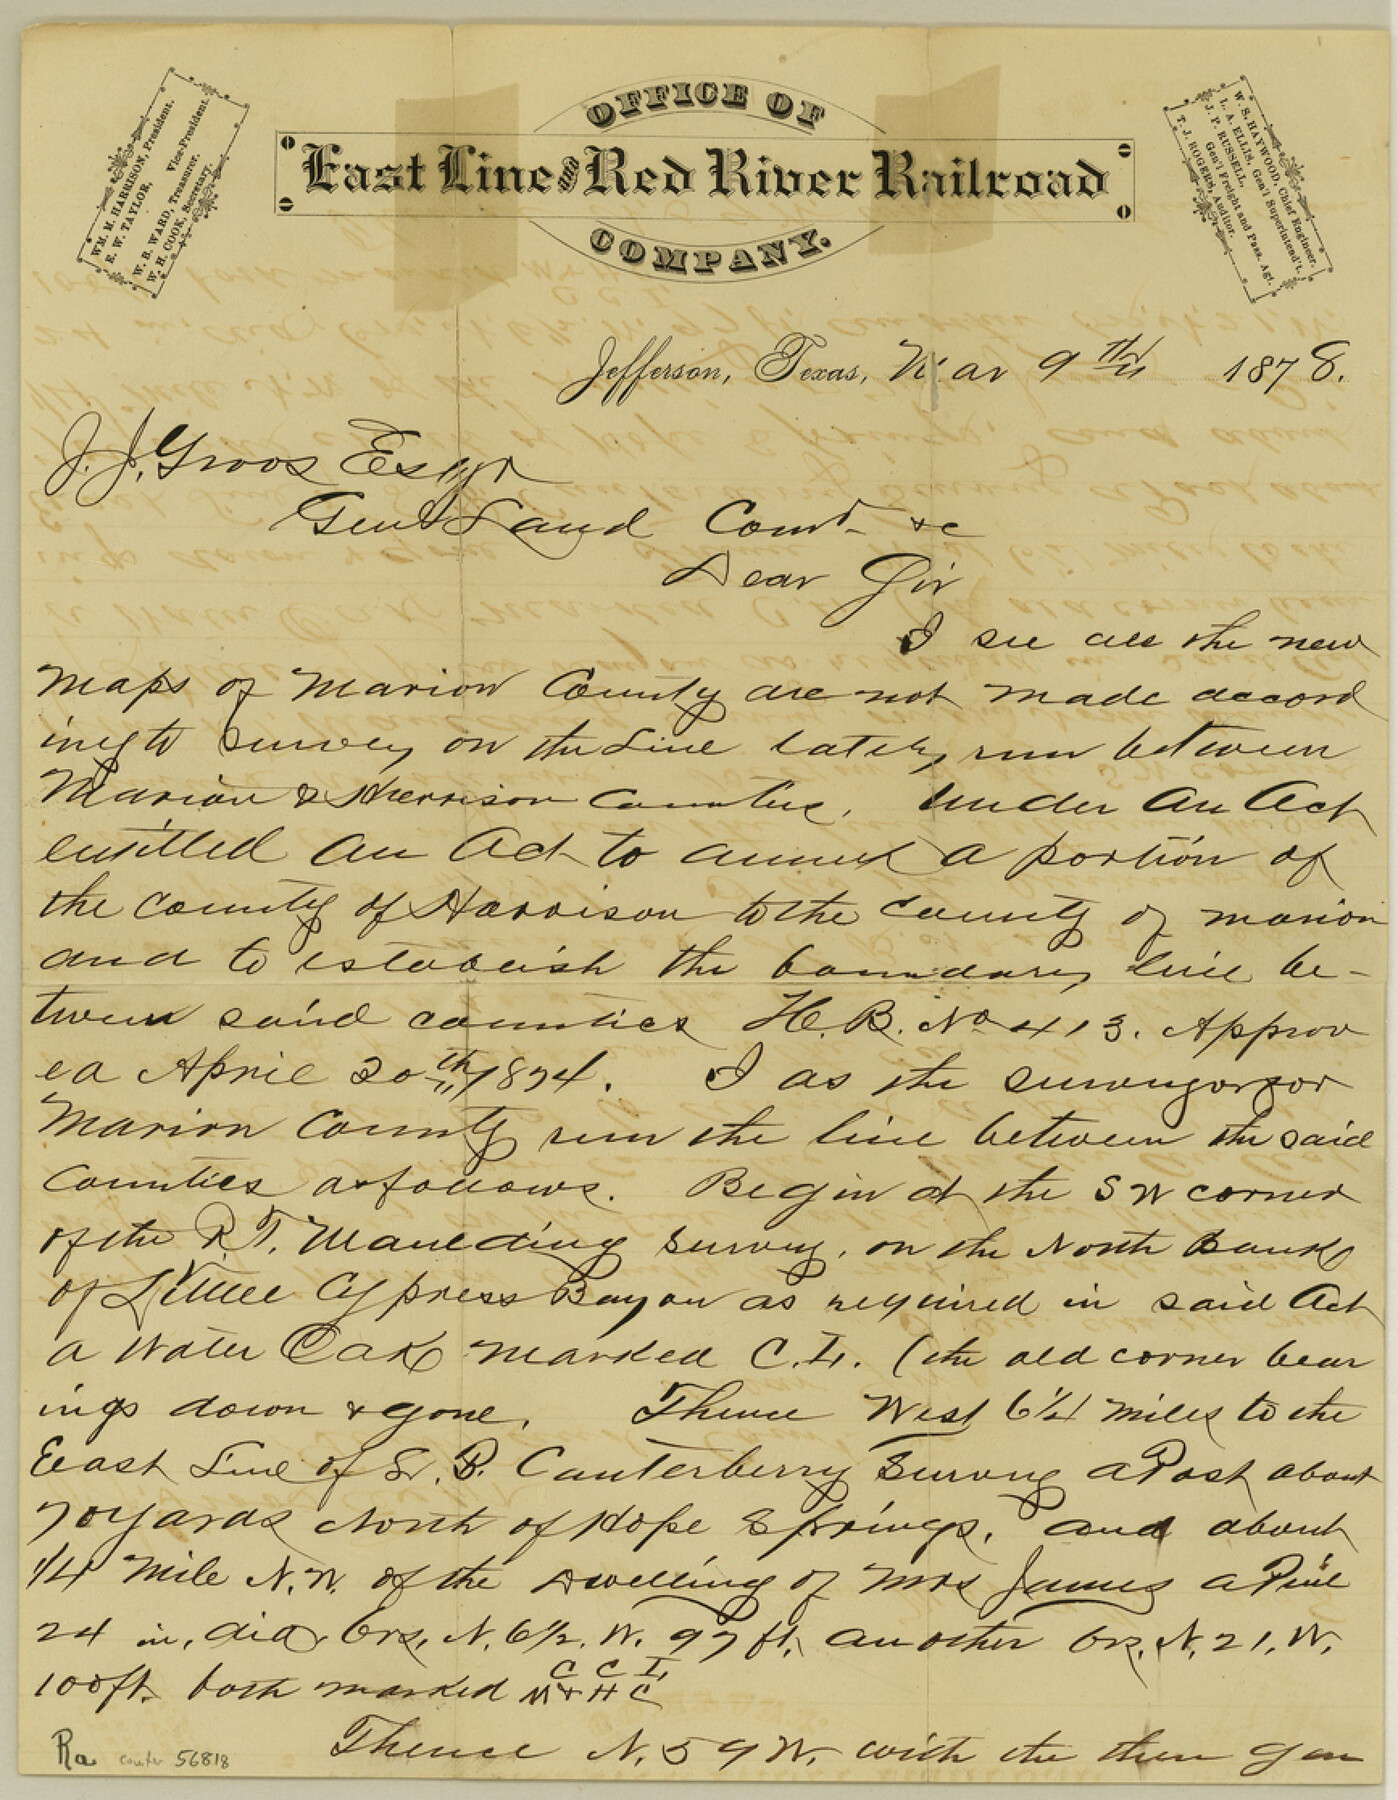 WM. M. HARRISON, President.
E. W. TAYLOR, Vice-President.
W. B. WARD, Treasurer.
W. H. COOK, Secretary.
OFFICE OF
East Line and Red River Railroad
COMPANY.
W. S. HAYWOOD, Chief Engineer.
L. A. ELLIS, Gen'l Superintend't.
J. P. RUSSELL,
Gen'l Freight and Pass. Agt.
T. J. ROGERS, Auditor.
Jefferson, Texas, Mar 9th 1878.
J. J. Groos Esqr
Genl Land Comr &c
Dear Sir
I see all the new
maps of Marion County are not made accord
ing to survey on the Line lately run between
Marion & Harrison Counties, under An Act
entitled An Act to annex a portion of
the county of Harrison to the county of marion
and to establish the boundary line be-
tween said counties H. B. No 413. Approv
ed April 20th 1874. I as the surveyor for
Marion County run the line between the said
Counties as follows. Begin at the SW corner
of the R. T. Maulding survey, on the North Bank
of Little Cypress Bayou as required in said Act
a Water Oak marked C. L. (the old corner bear
ings down & gone. Thence West 6 1/4 miles to the
East Line of S. B. Canterberry Survey a Post about
70 yards North of Hope Springs, and about
1/4 mile N. W. of the dwelling of Mrs James a Pine
24 in. dia. brs. N. 6 1/2. W. 97 ft. another brs. N. 21. W.
100 ft. both marked C C L
M & H C
Thence N. 59 W. with the then
Ra counter 56818